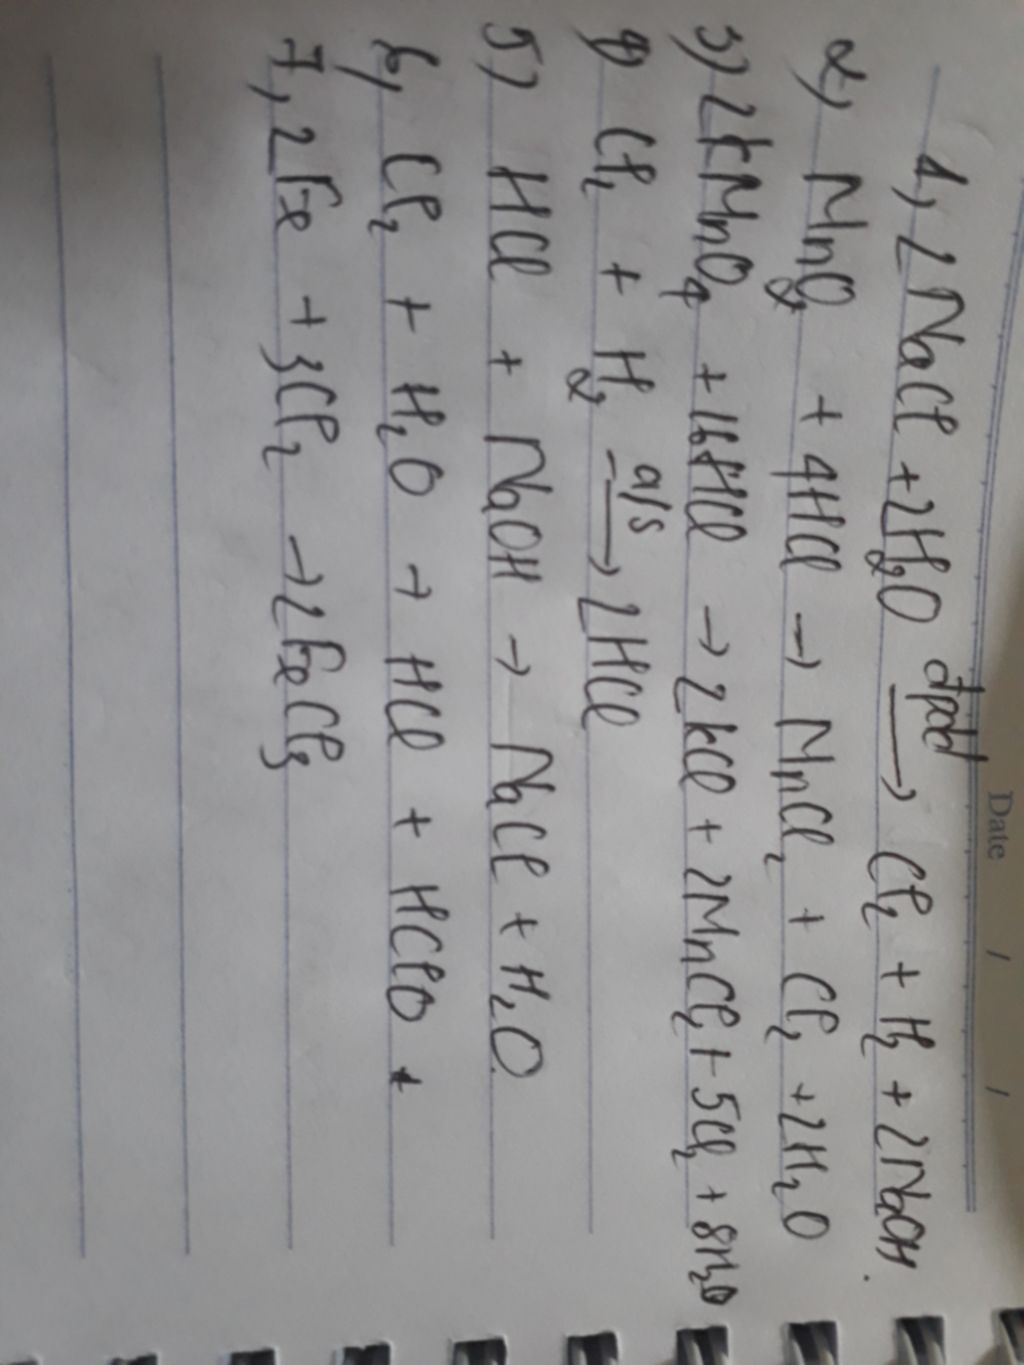 Date / /
1, 2NaCl + 2H₂O đpdd → Cl₂ + H₂ + 2NaOH.
2, MnO₂ + 4HCl → MnCl₂ + Cl₂ + 2H₂O
3, 2KMnO₄ + 16HCl → 2KCl + 2MnCl₂ + 5Cl₂ + 8H₂O
4) Cl₂ + H₂ a/s → 2HCl
5) HCl + NaOH → NaCl + H₂O
6, Cl₂ + H₂O → HCl + HClO +
7, 2Fe + 3Cl₂ → 2FeCl₃